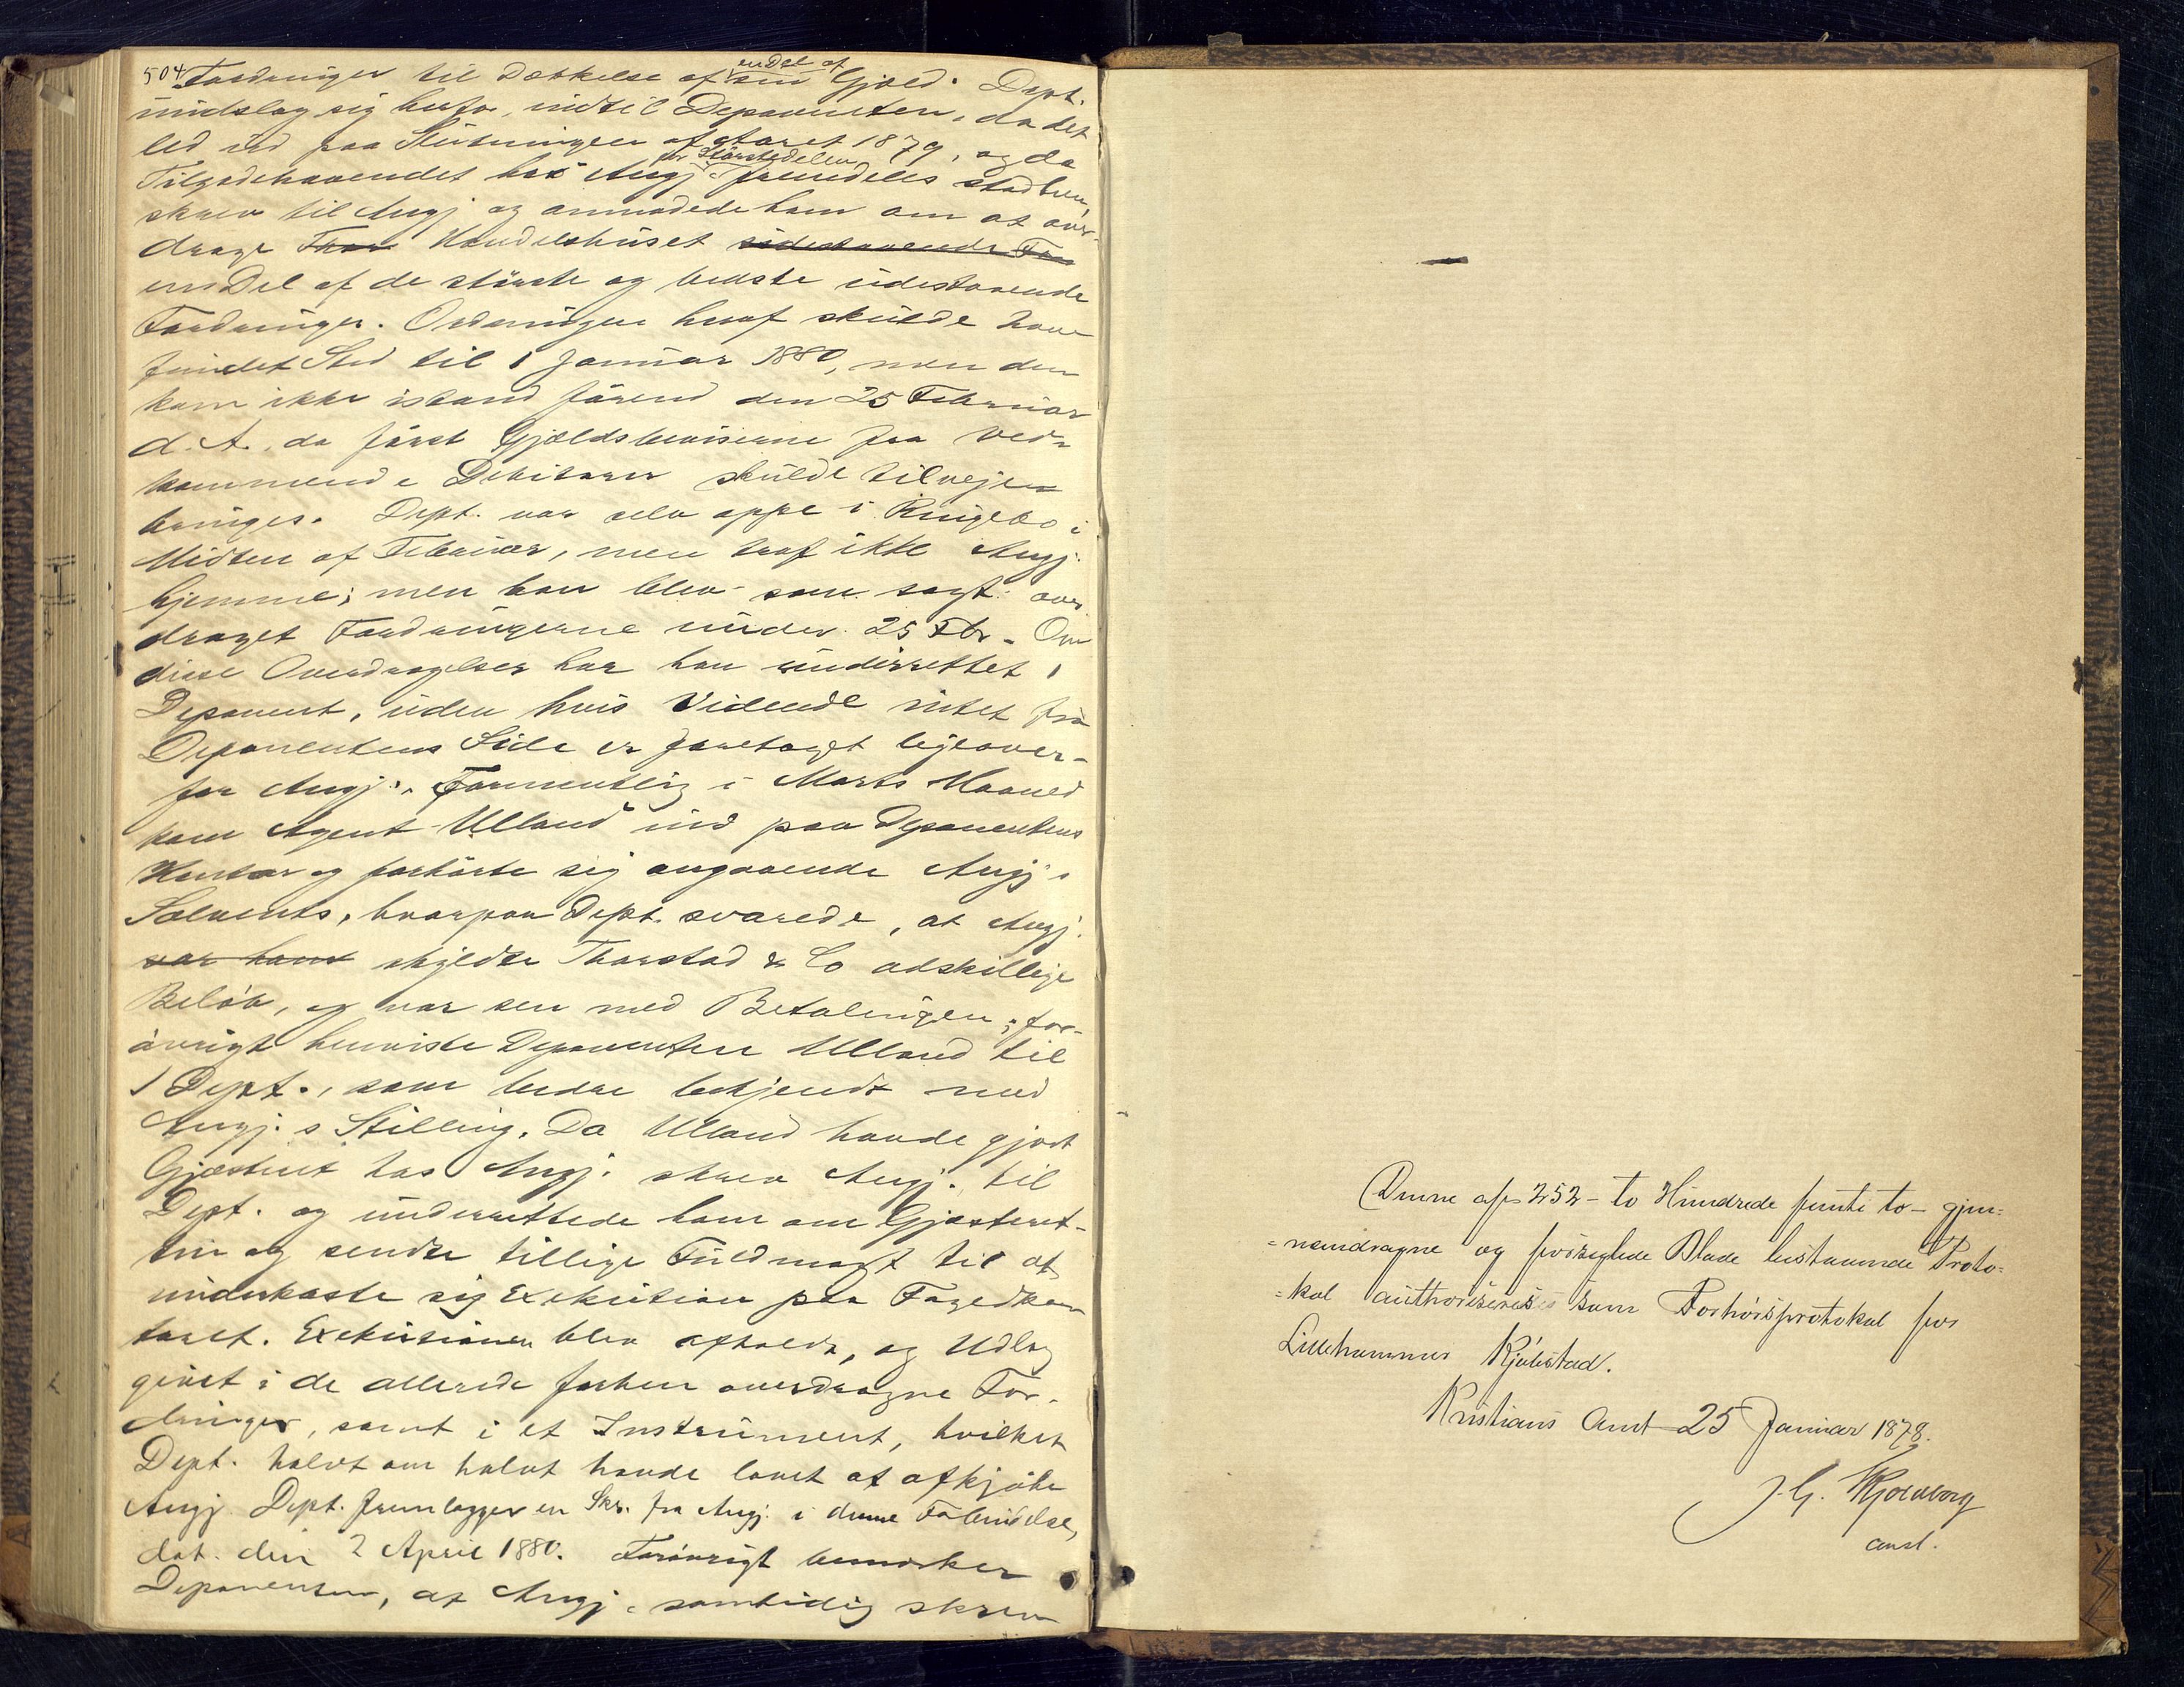 504 Fordringer til Dækkelse af endel af sin Gjæld. Dept.
undslog sig herfor, indtil Deponenten, da det
led ud paa Slutningen af Aaret 1879, og da
Tilgodehavendet hos Angj. for Størstedelen fremdeles stod hen,
skrev til Angj og anmodede ham om at over-
drage Thor Handelshuset udestaaende For
en Del af de største og bedste udestaaende
Fordringer. Ordningen heraf skulde have
fundet Sted til 1 Januar 1880, men den
kom ikke istand førend den 25 Februar
d. A., da først Gjældsbeviserne fra Ved-
kommende Debitorer skulde tilveje-
bringes. Dept. var selv oppe i Ringebo i
Midten af Februar, men traf ikke Angj.
hjemme; men han blev som sagt over
draget Fordringerne under 25 Fbr. Om
disse Overdragelser har han underrettet 1
Deponent, uden hvis Vidende intet fra
Deponentens Side er foretaget ligeover-
for Angj. Formentlig i Marts Maaned
kom Agent Ulland ind paa Deponentens
Kontor og forhørte sig angaaende Angj.s
Solvents, hvorpaa Dept. svarede, at Angj.
var ham skyldte Thorstad & Co adskillige
Beløb, og var sen med Betalingen; for-
øvrigt henviste Deponenten Ulland til
1 Dept., som bedre bekjendt med
Angj.s Stilling. Da Ulland havde gjort
Gjæsteret hos Angj. skrev Angj. til
Dept. og underrettede ham om Gjæsteret-
ten og sendte tillige Fuldmagt til at
underkaste sig Exekution paa Fogedkon
toret. Exekutionen blev afholdt, og Udlæg
givet i de allerede forhen overdragne For-
dringer, samt i et Instrument, hvilket
Dept. halvt om halvt havde lovet at afkjøbe
Angj. Dept. fremlægger en Skr. fra Angj. i denne Forbindelse,
dat. den 2 April 1880. Forøvrigt bemærker
Deponenten, at Angj. samtidig skrev
Denne af 252 - to Hundrede femti to - gjen=
=nemdragne og forseglede Blade bestaaende Proto=
=kol authoriseres som Forhørsprotokol for
Lillehammer Kjøbstad.
Kristians Amt 25 Januar 1878.
J. G.
const.